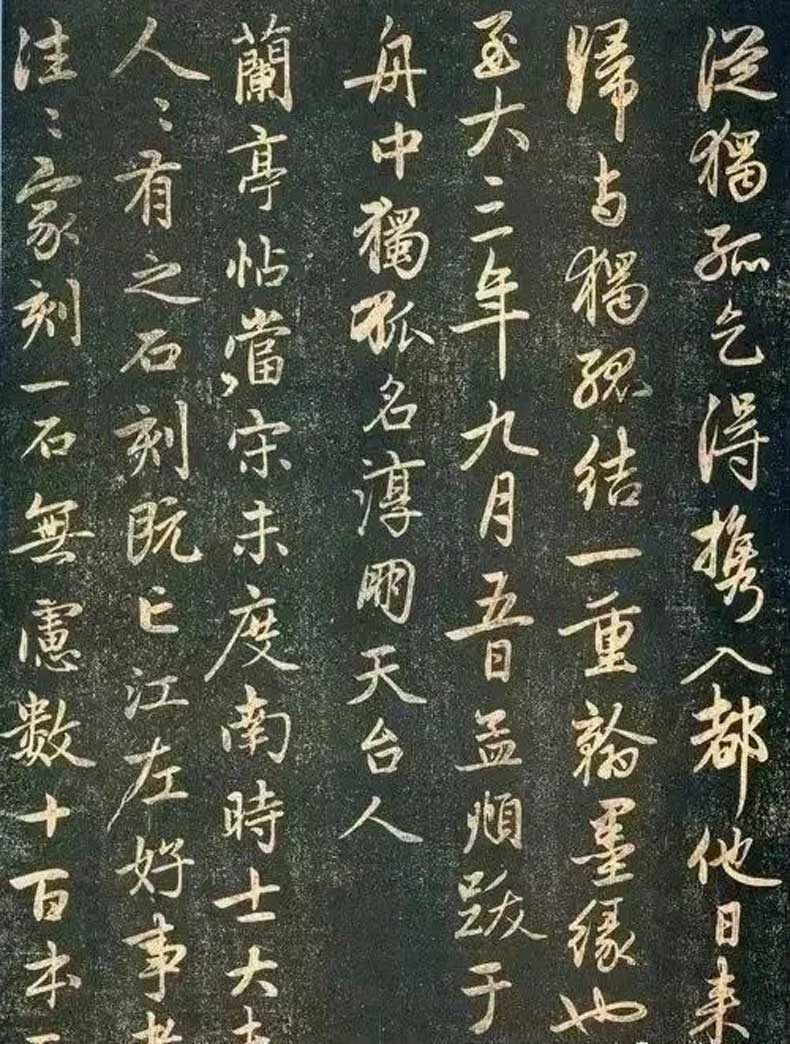 從獨孤乞得攜入都他日来
歸与獨孤結一重翰墨緣也
至大三年九月五日孟頫跋于
舟中獨孤名淳朋天台人
蘭亭帖當宋未度南時士大夫
人〻有之石刻既亡江左好事者
往〻家刻一石無慮数十百本